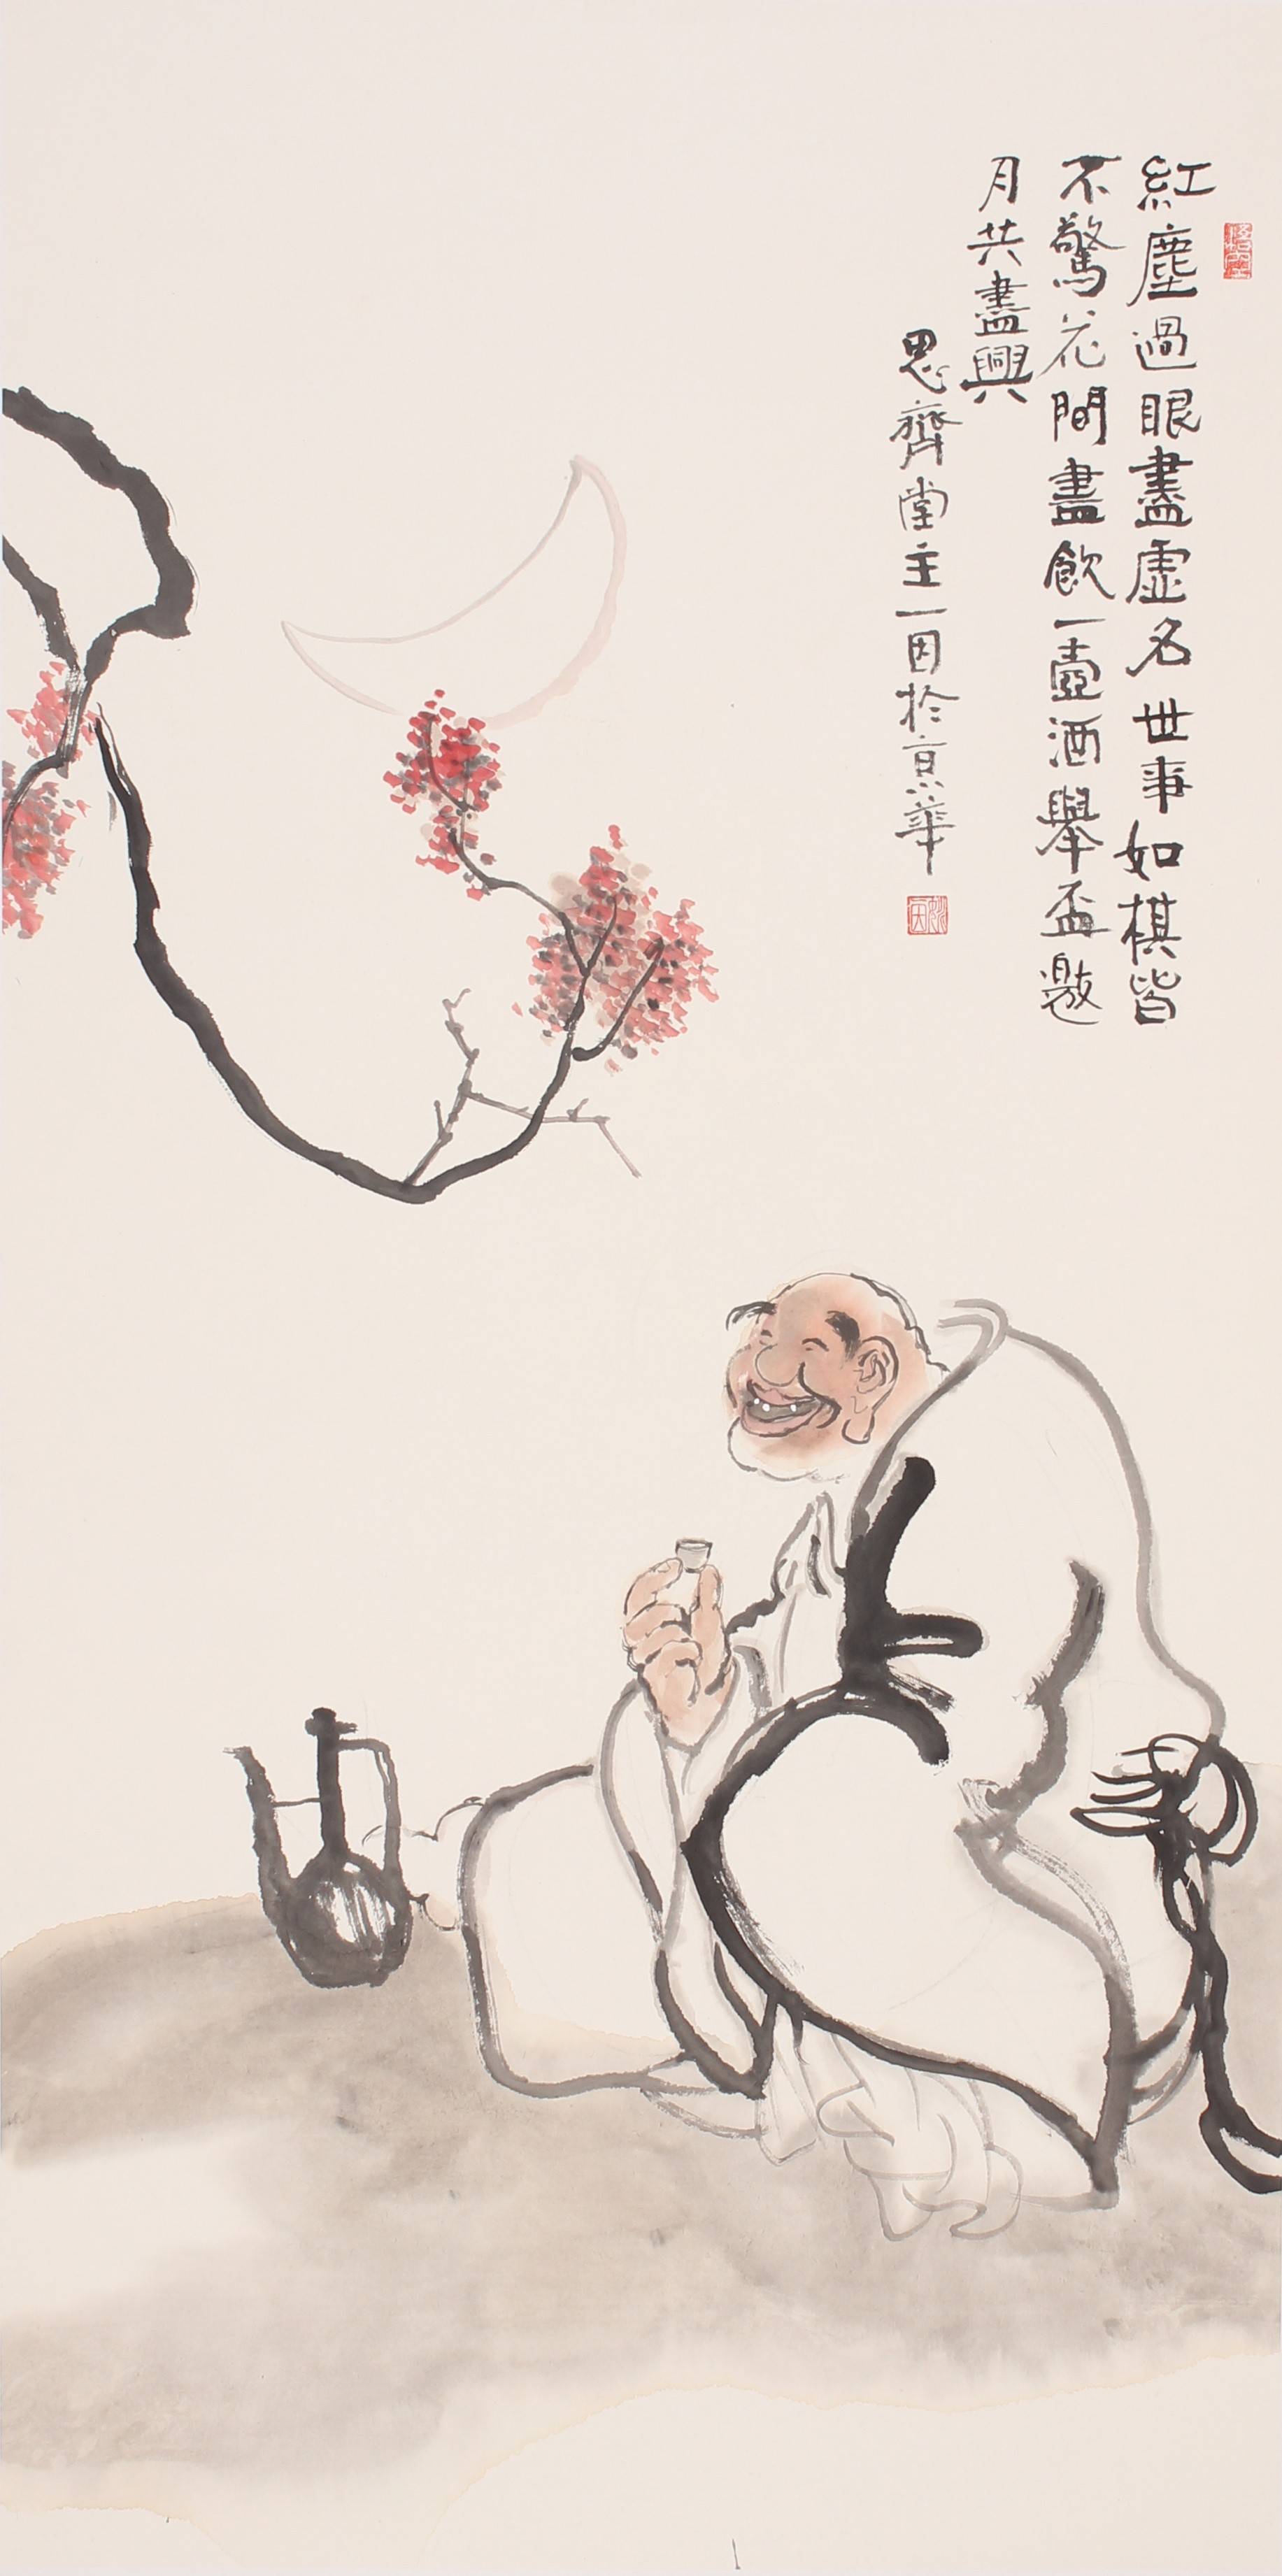 紅塵過眼盡虛名世事如棋皆
不驚花間盡飲一壺酒舉盃邀
月共盡興
思齊堂主一因於京華